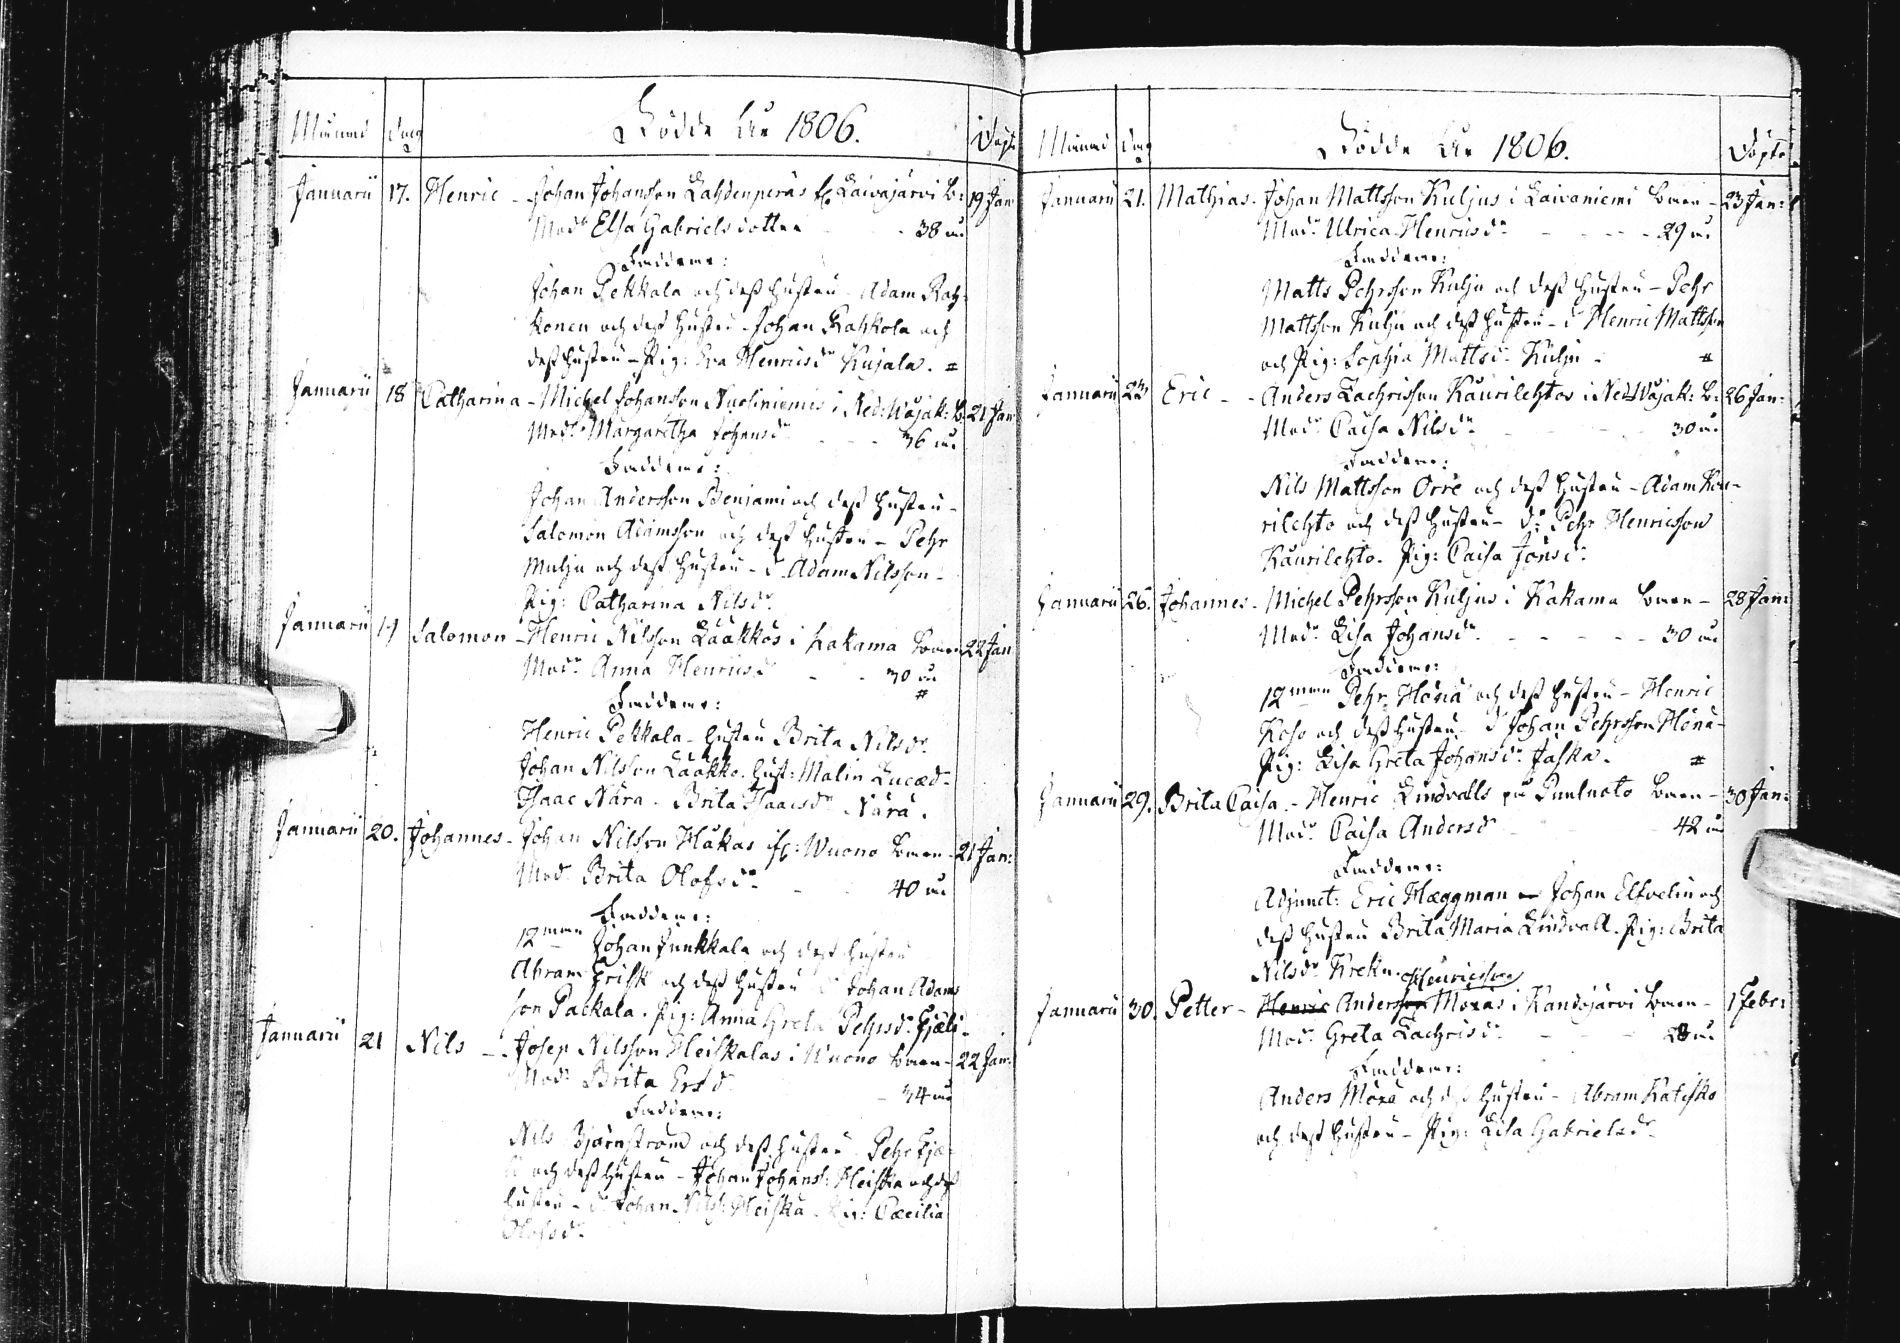 Månad dag Födde År 1806. Döpt
Januarii 17. Henric - Johan Johansson Lahdenperäs fr Laivajärvi b: 19 Jan
Modr Elsa Gabrielsdotter - - 38 år
Faddrar:
Johan Pekkala och dess hustru - Adam Rah-
konen och dess hustru - Johan Rahkola och
dess hustru - Pig: Eva Henricsdr Kujala. #
Januarii 18 Catharina - Michel Johansson Nuosiniemis i Ned: Wojak: b. 21 Jan
Modr Margaretha Johansdr - - - 36 år
Faddrar:
Johan Andersson Benjami och dess hustru -
Salomon Adamsson och dess hustru - Pehr
Mulju och dess hustru - d. Adam Nilsson -
Pig: Catharina Nilsdr
Januarii 19 Salomon - Henric Nilsson Lääkkös i Kakama boeren 22 Jan
Modr Anna Henricsdr - - 30 år
#
Faddrar:
Henric Pekkala - hustru Brita Nilsdr
Johan Nilsson Lääkkö. hust: Malin Lucæd-
Isaac Nära - Brita Isacsdr Nära.
Januarii 20. Johannes - Johan Nilsson Hakas if: Wuono boeren - 21 Jan:
Modr Brita Olofsdr - 40 år
Faddrar:
12 man Johan Junkkala och dess hustru
Abram Erisk och dess hustru d Johan Adams
son Packala. Pig: Anna Greta Pehrsdr Fjäli-
Januarii 21 Nils - - Josep Nilsson Heiskalas i Wuono boeren - 22 Jan:
Modr Brita Ersdr - 34 år
Faddrar:
Nils Björnström och dess hustru Pehr Fjæ-
li och dess hustru - Johan Johanss: Heiska och dess
hustru - d. Johan Nilss: Heiska. Pig: Cæcilia
Olofsdr
Månad dag Födde År 1806. Döpte
Januarii 21. Mathias - Johan Mattsson Kuljus i Laivaniemi boeren - 23 Jan:
Modr Ulrica Henricsdr - - - - 29 år
Faddrar:
Matts Pehrsson Kulju och dess hustru - Pehr
Mattsson Kulju och dess hustru - d Henric Mattsson
och Pig: Sophia Mattsdr Kulju - #
Januarii 23 Eric - - Anders Zachrisson Kaurilehtos i Ned Wojak: b: 26 Jan:
Modr Caisa Nilsdr - - - 30 år
Faddrar:
Nils Mattsson Orre och dess hustru - Adam Kau-
rilehto och dess hustru - dr: Pehr Henricsson
Kaurilehto. Pig: Caisa Jönsdr
Januarii 26. Johannes - Michel Pehrsson Kuljus i Kakama boeren - 28 Jan:
Modr Lisa Johansdr - - - - 30 år
Faddrar:
12 man Pehr Hösiä och dess hustru - Henric
Koso och dess hustru d Johan Pehrsson
Pig: Lisa Greta Johansdr Jaska. #
Januarii 29. Brita Caisa - Henric Lindvalls på boeren - 30 Jan:
Modr Caisa Andersdr - 42 år
Faddrar:
Adjunct: Eric Hæggman - Johan Elfvelin och
dess hustru Brita Maria Lindvall. Pig: Brita
Nilsdr Kreku.
Henricsson
Januarii 30. Petter - Henric Andersson Moxas i Kandojärvi boeren - 1 Febr:
Modr Greta Zachrisdr - - - 28 år
Faddrar:
Anders Moxa och dess hustru - Abram Katisko
och dess hustru - Pig: Lisa Gabrielsdr